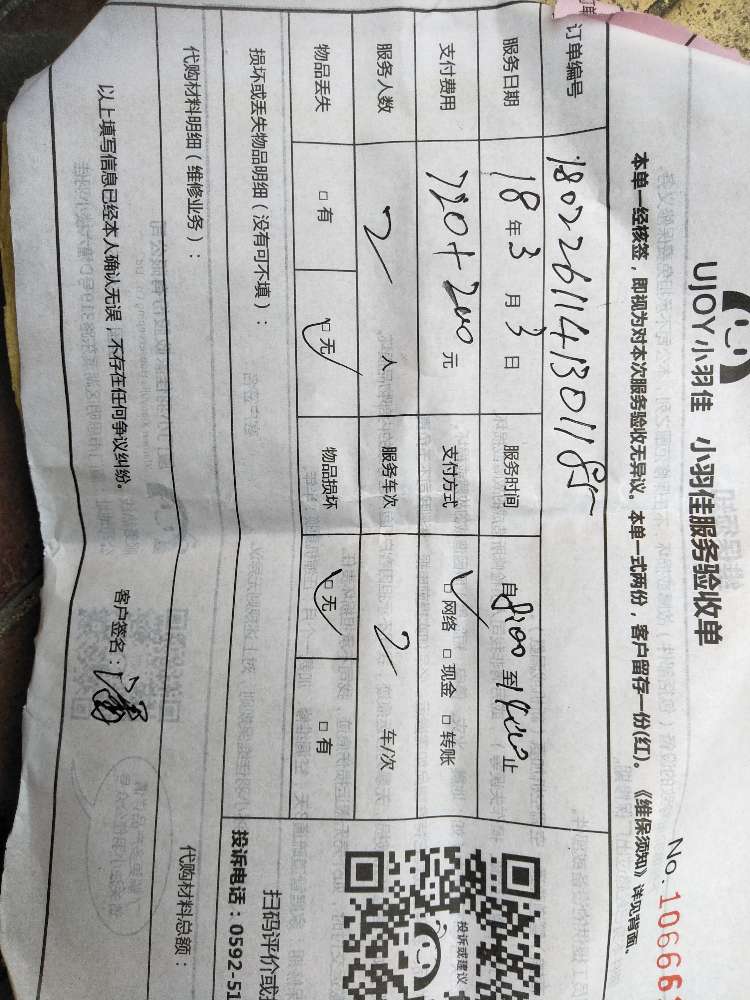 UJOY小羽佳 小羽佳服务验收单
No.10666
本单一经核签，即视为对本次服务验收无异议。本单一式两份，客户留存一份(红)。《维保须知》详见背面。
订单编号 1802261141301185
服务日期 18年3月3日 服务时间 自8:00至14:00止
支付费用 720+200元 支付方式 □网络 □现金 □转账
服务人数 2人 服务车次 2车/次
物品丢失 □有 □无 物品损坏 □无 □有
损坏或丢失物品明细（没有可不填）：
代购材料明细（维修业务）： 代购材料总额：
以上填写信息已经本人确认无误，不存在任何争议纠纷。 客户签名：潘
投诉或建议
扫码评价或
投诉电话：0592-51